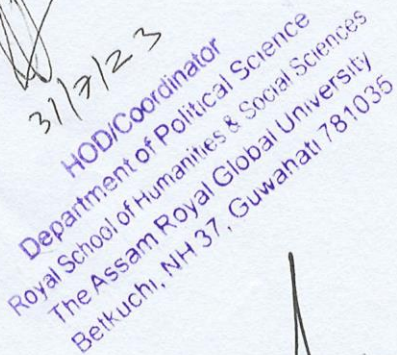 31/7/23
HOD/Coordinator
Department of Political Science
Royal School of Humanities & Social Sciences
The Assam Royal Global University
Betkuchi, NH 37, Guwahati 781035